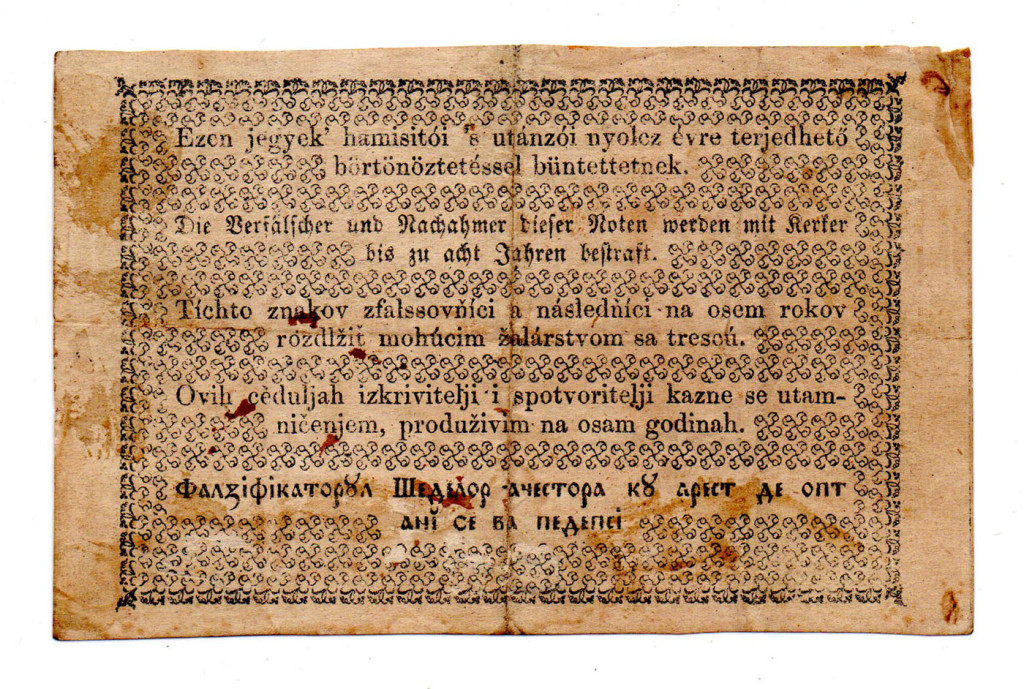 Ezen jegyek’ hamisitói ’s utánzói nyolcz évre terjedhető
börtönöztetéssel büntettetnek.
Die Verfälscher und Nachahmer dieser Noten werden mit Kerker
bis zu acht Jahren bestraft.
Tíchto znakov zfalssovňíci a následňíci na osem rokov
rozdlžiť mohúcim žalárstvom sa trescú.
Ovih ceduljah izkrivitelji i spotvoritelji kazne se utam-
ničenjem, produživim na osam godinah.
Фалꙃіфікаторꙋл Шеделор ачестора кꙋ арест де опт
ані се ва педепсі